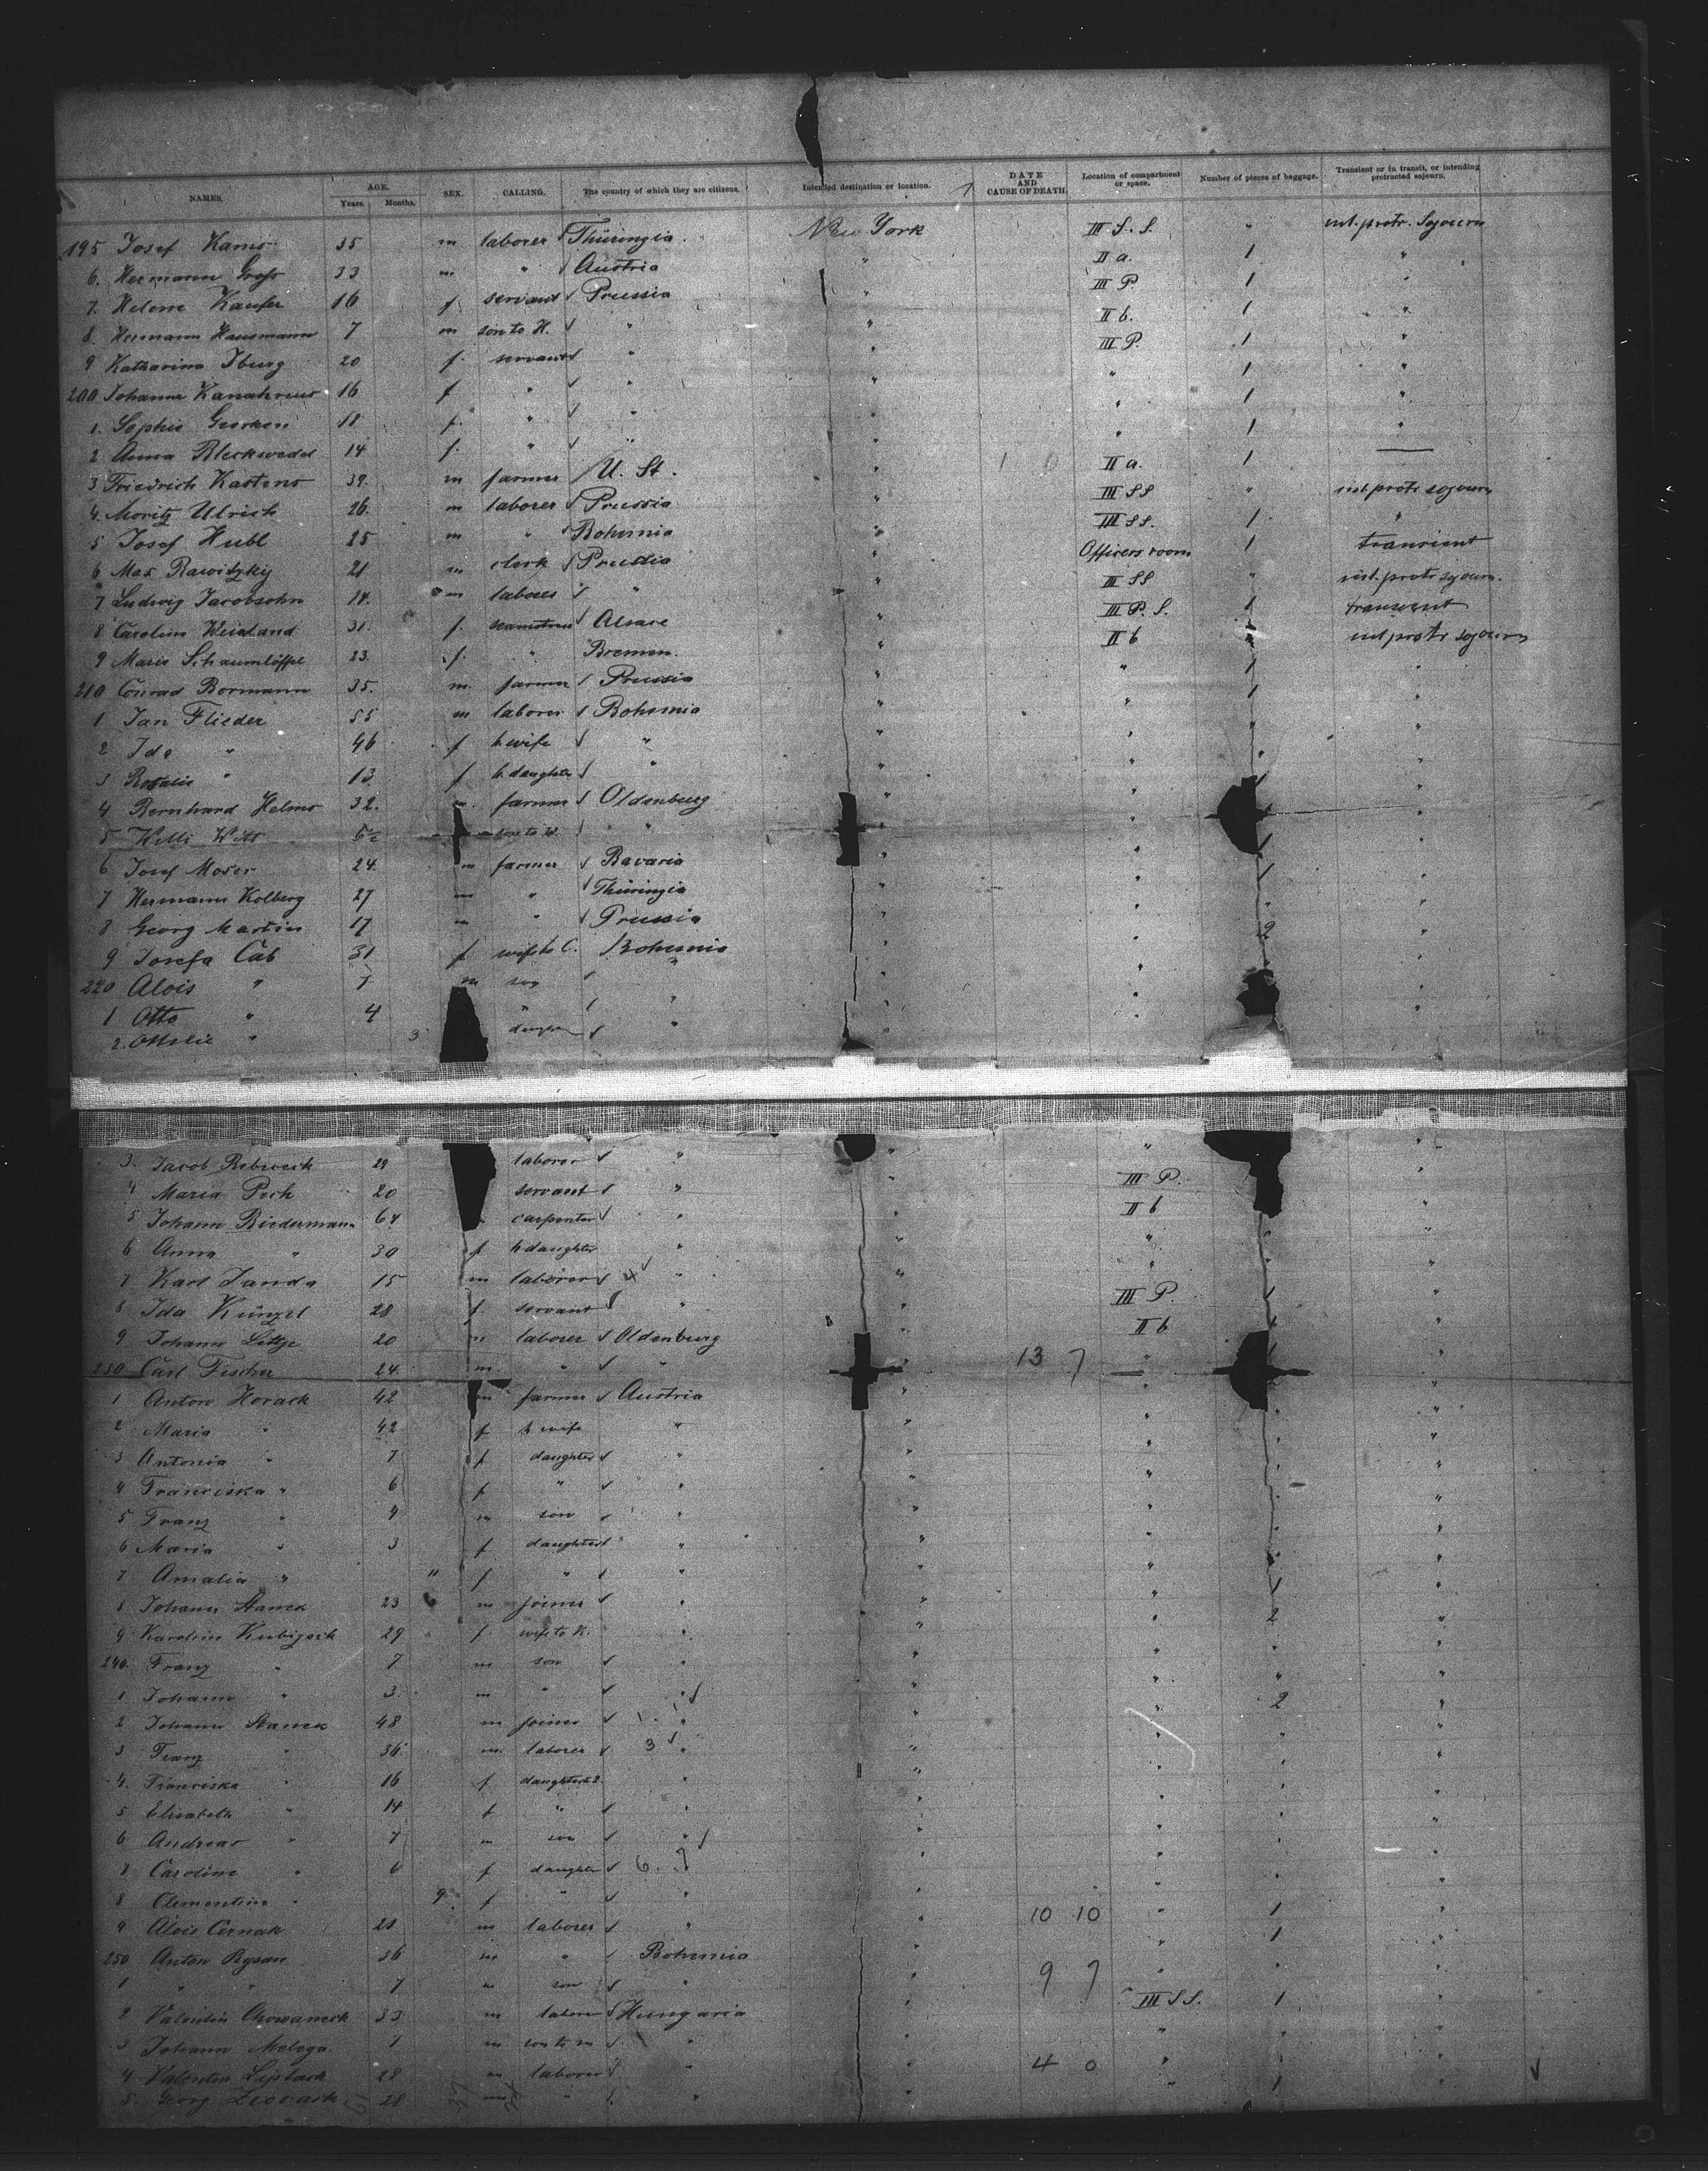 NAMES. AGE. Years. Months. SEX. CALLING. The country of which they are citizens. Intended destination or location. DATE AND CAUSE OF DEATH. Location of compartment or space. Number of pieces of baggage. Transient or in transit, or intending protracted sojourn.
195 Josef 35 m laborer Thüringia. New York III S.S. " int. protr. Sojourn
6. Hermann Gross 33 m. " Austria " II a. 1 "
7. Helene Kaufer 16 f servant Prussia " III P. 1 "
8. Hermann Hausmann 7 m son to H. " " II b. 1 "
9 Katharina Iburg 20 f. servant " " III P. 1 "
200 Johanna 16 f " " " " 1 "
1. Sophie Gerken 18 f. " " " " 1 "
2 Anna Bleckwedel 14 f. " " " " 1 "
3 Friedrich Kastens 39. m farmer U. St. " II a. 1 —
4. Moritz Ulrich 26. m laborer Prussia " III SS " int. protr sojourn
5 Josef Hubl 25 m " Bohemia " III SS. 1 "
6 Max Rawitzky 21 m clerk Prussia " Officers room 1 transient
7 Ludwig Jacobsohn 14. m laborer " " III SS " int. protr sojourn.
8 Carolina Weidand 31. f. seamstress Alsace " III P. S. 1 transient
9 Marie Schaumlöffel 23. f. " Bremen. " II b int protr sojourn
210 Conrad Bormann 35. m. farmer Prussia " " 1 "
1 Jan Flieder 55 m laborer Bohemia " " 1 "
2 Ida " 46 f h wife " " " " "
3 Rosalie " 13 f h. daughter " " " " "
4 Bernhard Helms 32. m. farmer Oldenburg " " 1 "
5 Willi Witt son to W. " " " 1 "
6 Josef Moser 24. m farmer Bavaria " " 1 "
7 Hermann Kolberg 27 m " Thüringia " " 1 "
8 Georg Martin 17 m " Prussia " " " "
9 Josefa Cab 31 f wife to C. Bohemia " " 2 "
220 Alois " 7 m son " " " " "
1 Otto " 4 " " " " "
2. Ottilie " 3 daughter "
3. Jacob 28 laborer " " " "
4 Maria Pech 20 servant " " III P. "
5 Johann Biedermann 64 carpenter " " II b "
6 Anna " 30 f h daughter " " " " "
7 Karl Janda 15 m laborer 4 " " " " "
8 Ida Künzel 28 f. servant " " III P. 1 "
9 Johann Lettje 20 m laborer Oldenburg " II b 1 "
230 Carl Fischer 24. m. " " " 13 7 " 1 "
1 Anton Horack 42 m farmer Austria " " " "
2 Maria " 42 f h wife " " " " "
3 Antonia " 7 f daughter " " " " "
4 Franciska " 6 f " " " " " "
5 Franz " 4 m son " " " " "
6 Maria " 3 f daughter " " " " "
7 Amalia " 11 f " " " " " "
8 Johann Stanek 23 m joiner " " " 1 "
9 Karolina Kubizack 29 f. wife to K. " " " 2 "
240. Franz " 7 m son " " " " "
1 Johann " 3. m " " " " " "
2 Johann Stanek 48 m joiner " " " 2 "
3 Franz " 36. m. laborer 3 " " " " "
4. Franciska " 16 f daughter to 2. " " " " "
5 Elisabeth " 14 f " " " " " "
6 Andreas " 7 m son " " " " "
7 Caroline " 6 f daughter 6. 7 " " " "
8 Clementine " 9 f " " " " " "
9 Alois Cernak 21 m laborer " " 10 10 " 1 "
250 Anton Rysan 36 m " Bohemia " " 1 "
1 " " 7 m son " " 9 7 " " "
2 Valentin Chowaneck 33 m laborer Hungaria " III SS. 1 "
3 Johann Malega. 1 m son to m " " " " "
4 Valentin 28 m laborer " " 4 0 " " "
5 Georg 28 m " " " " 1 "